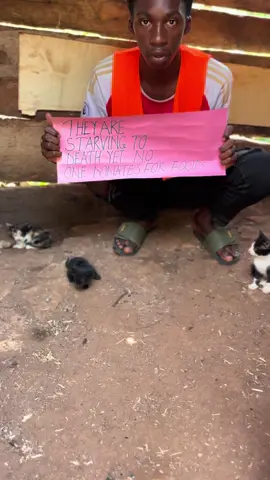 THEY ARE
STARVING TO
DEATH YET NO
ONE DONATES FOR FOOD